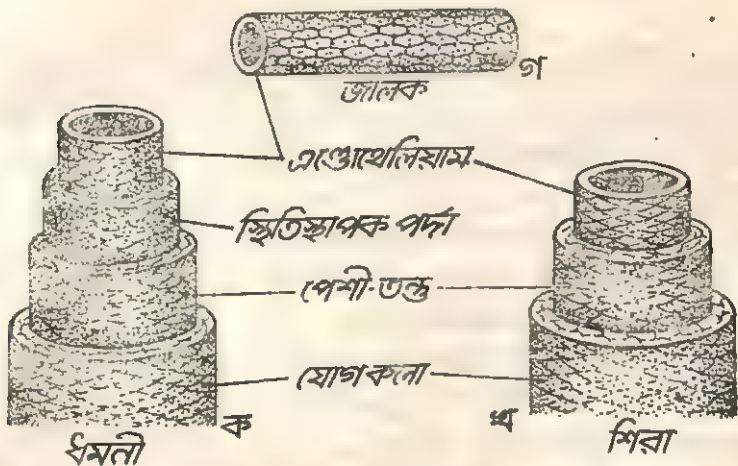 গ
জালক
এণ্ডোথেলিয়াম
স্থিতিস্থাপক পর্দা
পেশী-তন্তু
যোগ কলা
ক
খ
ধমনী
শিরা